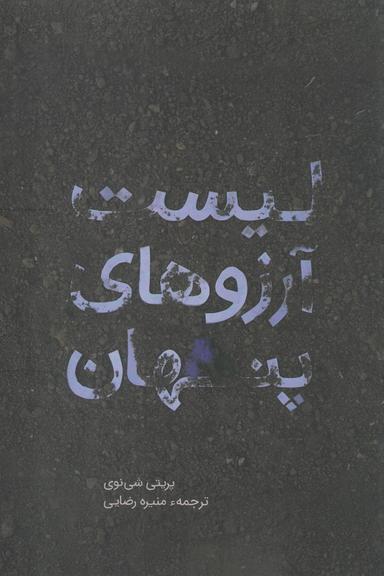 لیست
آرزوهای
پنهان
پریتی شی‌نوی
ترجمهٔ منیره رضایی